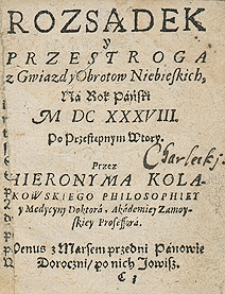 ROZSĄDEK
y
PRZESTROGA
z Gwiazd y Obrotow Niebieskich,
Na Rok Pański
M DC XXXVIII.
Po Przestępnym Wtory.
Przez
HIERONYMA KOLA-
KOWSKIEGO PHILOSOPHIEY
y Medycyny Doktorá, Akádemiey Zamoy-
skiey Professorá.
Venus z Marsem przedni Pánowie
Doroczni/ po nich Jowisz.